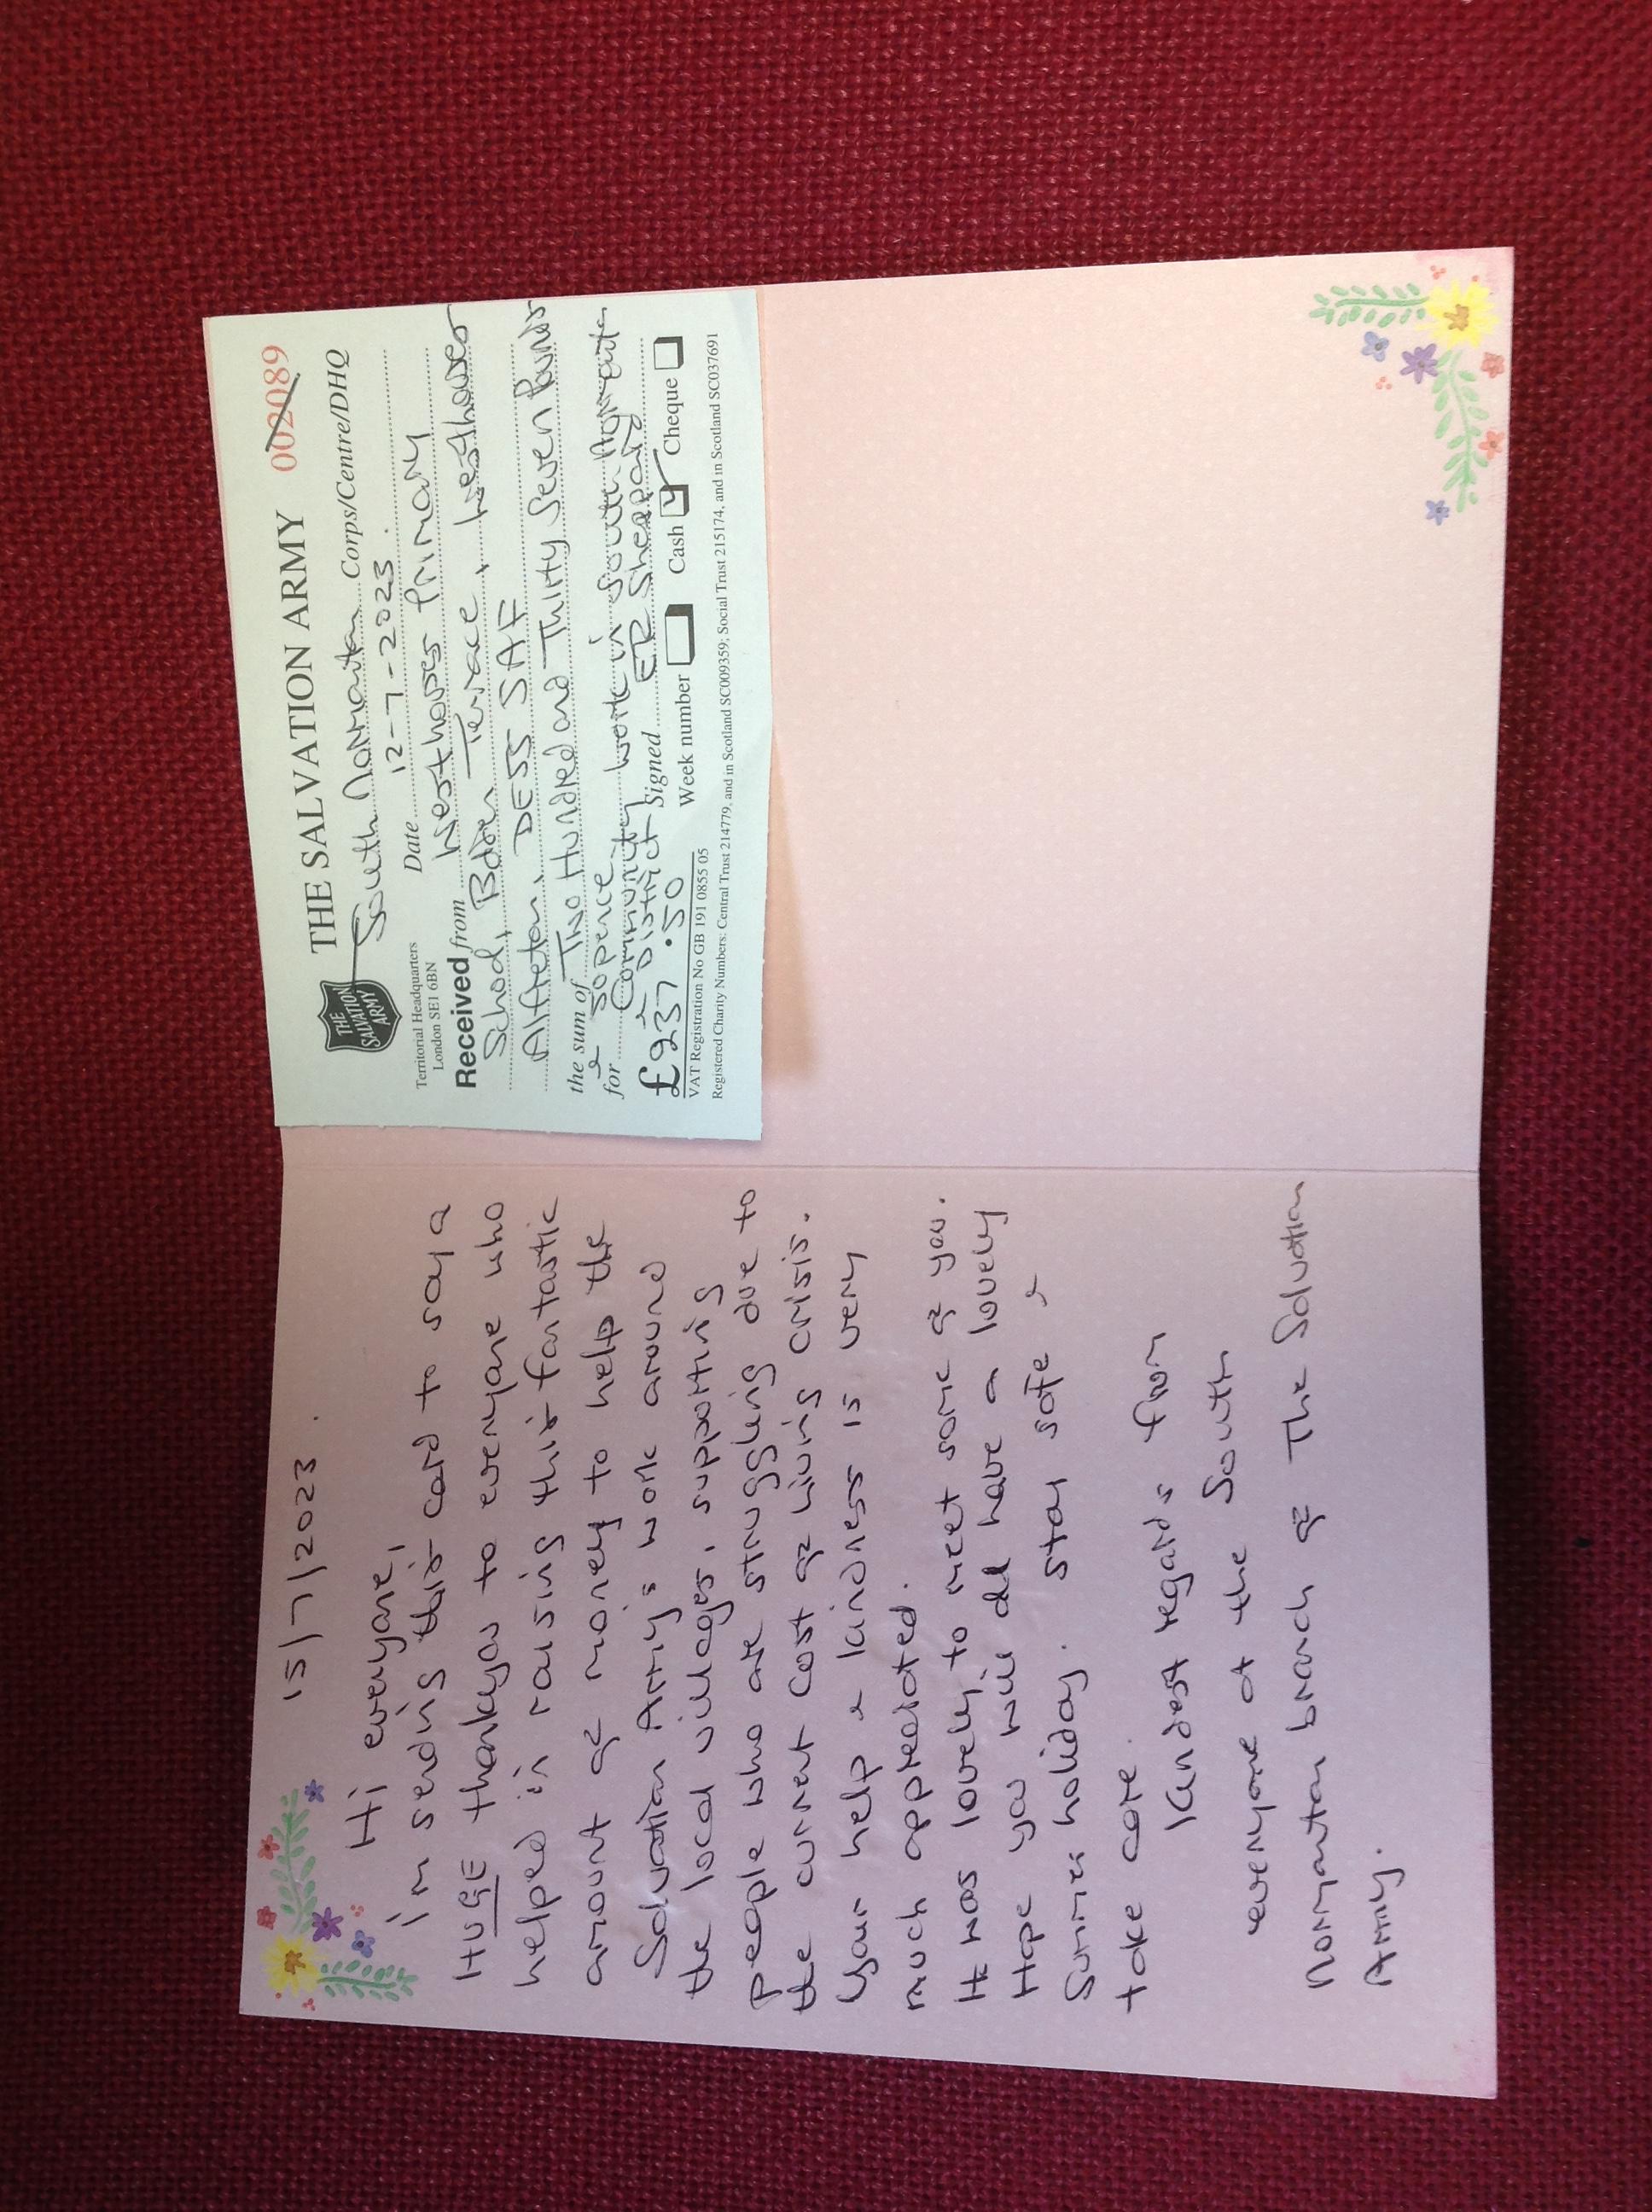 15/7/2023.
Hi everyone,
i'm sending this card to say a
HUGE thankyou to everyone who
helped in raising this fantastic
amount of money to help the
Salvation Army's work around
the local villages, supporting
people who are struggling due to
the current cost of living crisis.
Your help & kindness is very
much appreciated.
It was lovely to meet some of you.
Hope you will all have a lovely
Summer holiday. Stay safe &
take care.
Kindest regards from
everyone at the South
Normanton branch of The Salvation
Army.
THE SALVATION ARMY 002089
THE
SALVATION
ARMY
South Normanton Corps/Centre/DHQ
Territorial Headquarters
London SE1 6BN
Date 12-7-2023.
Received from Westhouses Primary
School, Bolden Terrace, Westhouses
Alfreton, DE55 5AF
the sum of Two Hundred and Thirty Seven Pounds
& 50pence
for Community work in South Normanton
& District Signed ER Sheppard
£237.50 Week number Cash Cheque
VAT Registration No GB 191 0855 05
Registered Charity Numbers: Central Trust 214779, and in Scotland SC009359; Social Trust 215174, and in Scotland SC037691